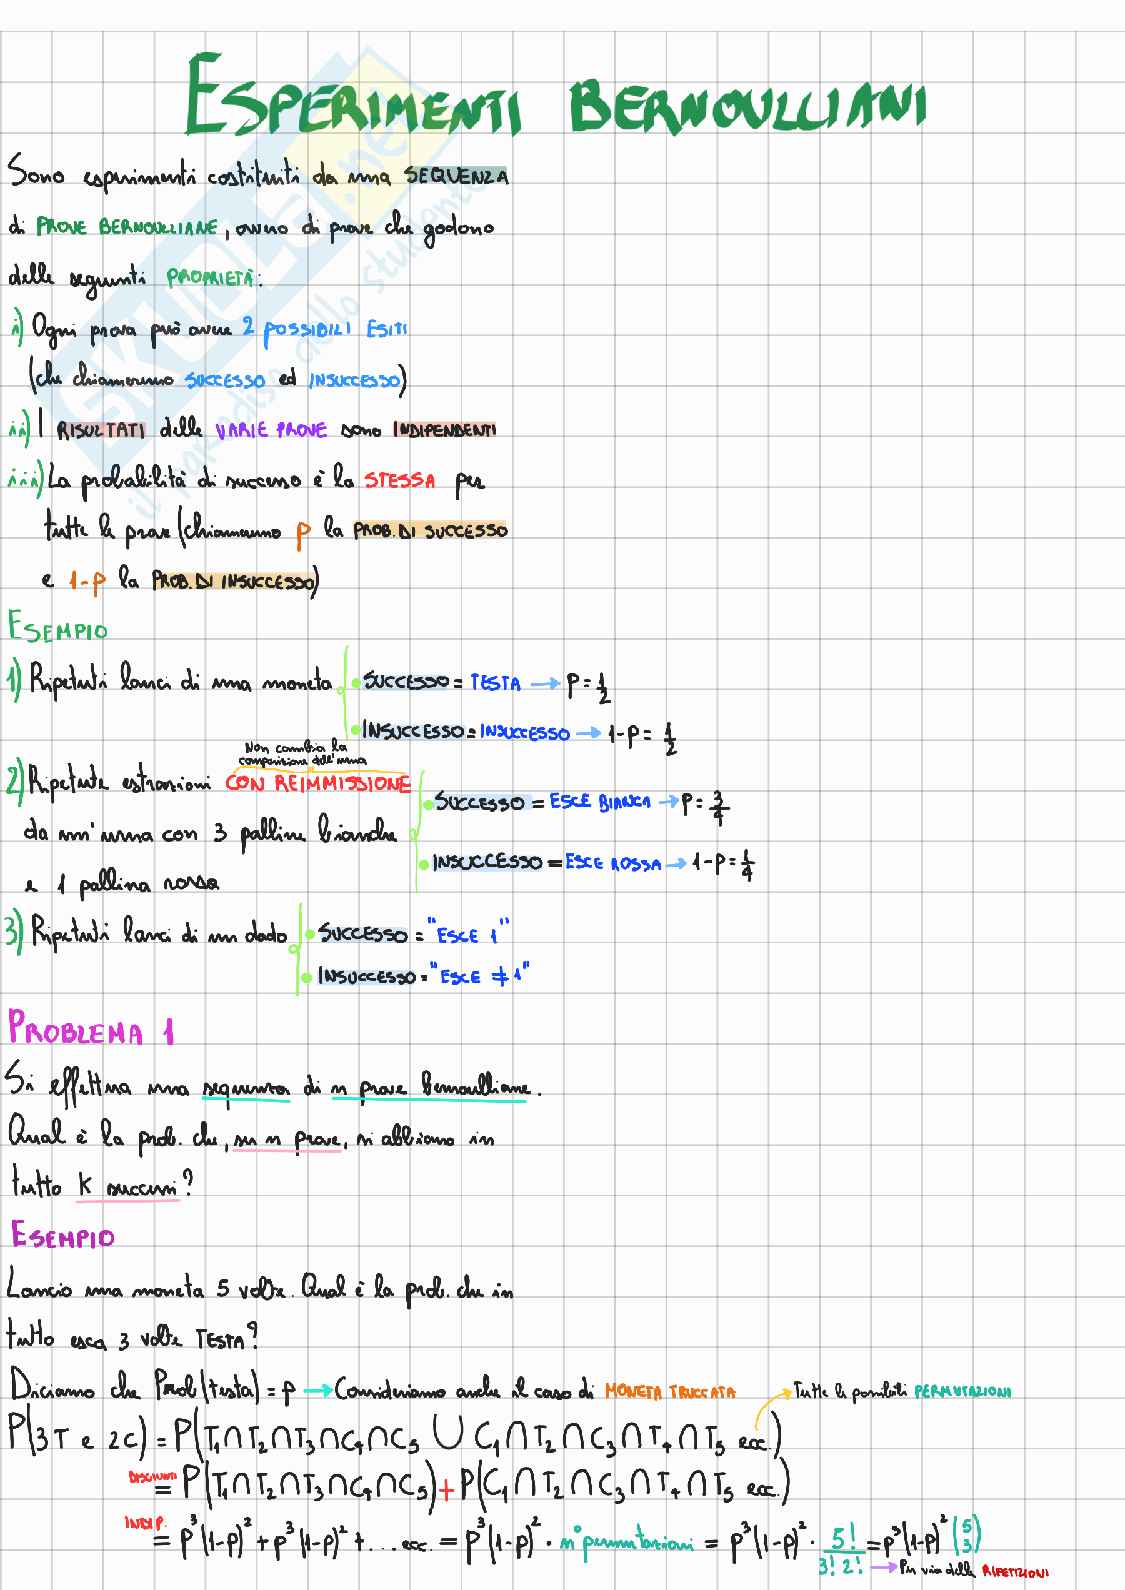 ESPERIMENTI BERNOULLIANI
Sono esperimenti costituiti da una SEQUENZA
di PROVE BERNOULLIANE, ovvero di prove che godono
delle seguenti PROPRIETÀ:
i) Ogni prova può avere 2 POSSIBILI ESITI
(che chiameremo SUCCESSO ed INSUCCESSO)
ii) I RISULTATI delle VARIE PROVE sono INDIPENDENTI
iii) La probabilità di successo è la STESSA per
tutte le prove (chiameremo p la PROB. DI SUCCESSO
e 1-p la PROB. DI INSUCCESSO)
ESEMPIO
1) Ripetuti lanci di una moneta
SUCCESSO = TESTA → p = 1/2
INSUCCESSO = INSUCCESSO → 1-p = 1/2
Non cambia la
composizione dell'urna
2) Ripetute estrazioni CON REIMMISSIONE
da un'urna con 3 palline bianche
e 1 pallina rossa
SUCCESSO = ESCE BIANCA → p = 3/4
INSUCCESSO = ESCE ROSSA → 1-p = 1/4
3) Ripetuti lanci di un dado
SUCCESSO = "ESCE 1"
INSUCCESSO = "ESCE ≠ 1"
PROBLEMA 1
Si effettua una sequenza di n prove bernoulliane.
Qual è la prob. che, su n prove, si abbiano in
tutto K successi?
ESEMPIO
Lancio una moneta 5 volte. Qual è la prob. che in
tutto esca 3 volte TESTA?
Diciamo che Prob(testa) = p → Consideriamo anche il caso di MONETA TRUCCATA
Tutte le possibili PERMUTAZIONI
P(3T e 2C) = P(T₁∩T₂∩T₃∩C₄∩C₅ ∪ C₁∩T₂∩C₃∩T₄∩T₅ ecc.)
DISGIUNTI = P(T₁∩T₂∩T₃∩C₄∩C₅) + P(C₁∩T₂∩C₃∩T₄∩T₅ ecc.)
INDIP. = p³(1-p)² + p³(1-p)² + ... ecc. = p³(1-p)² · n° permutazioni = p³(1-p)² · 5!/3! 2! = p³(1-p)² (5 3)
→ Per via delle RIPETIZIONI
SKUOLA.net
il paradiso dello studente